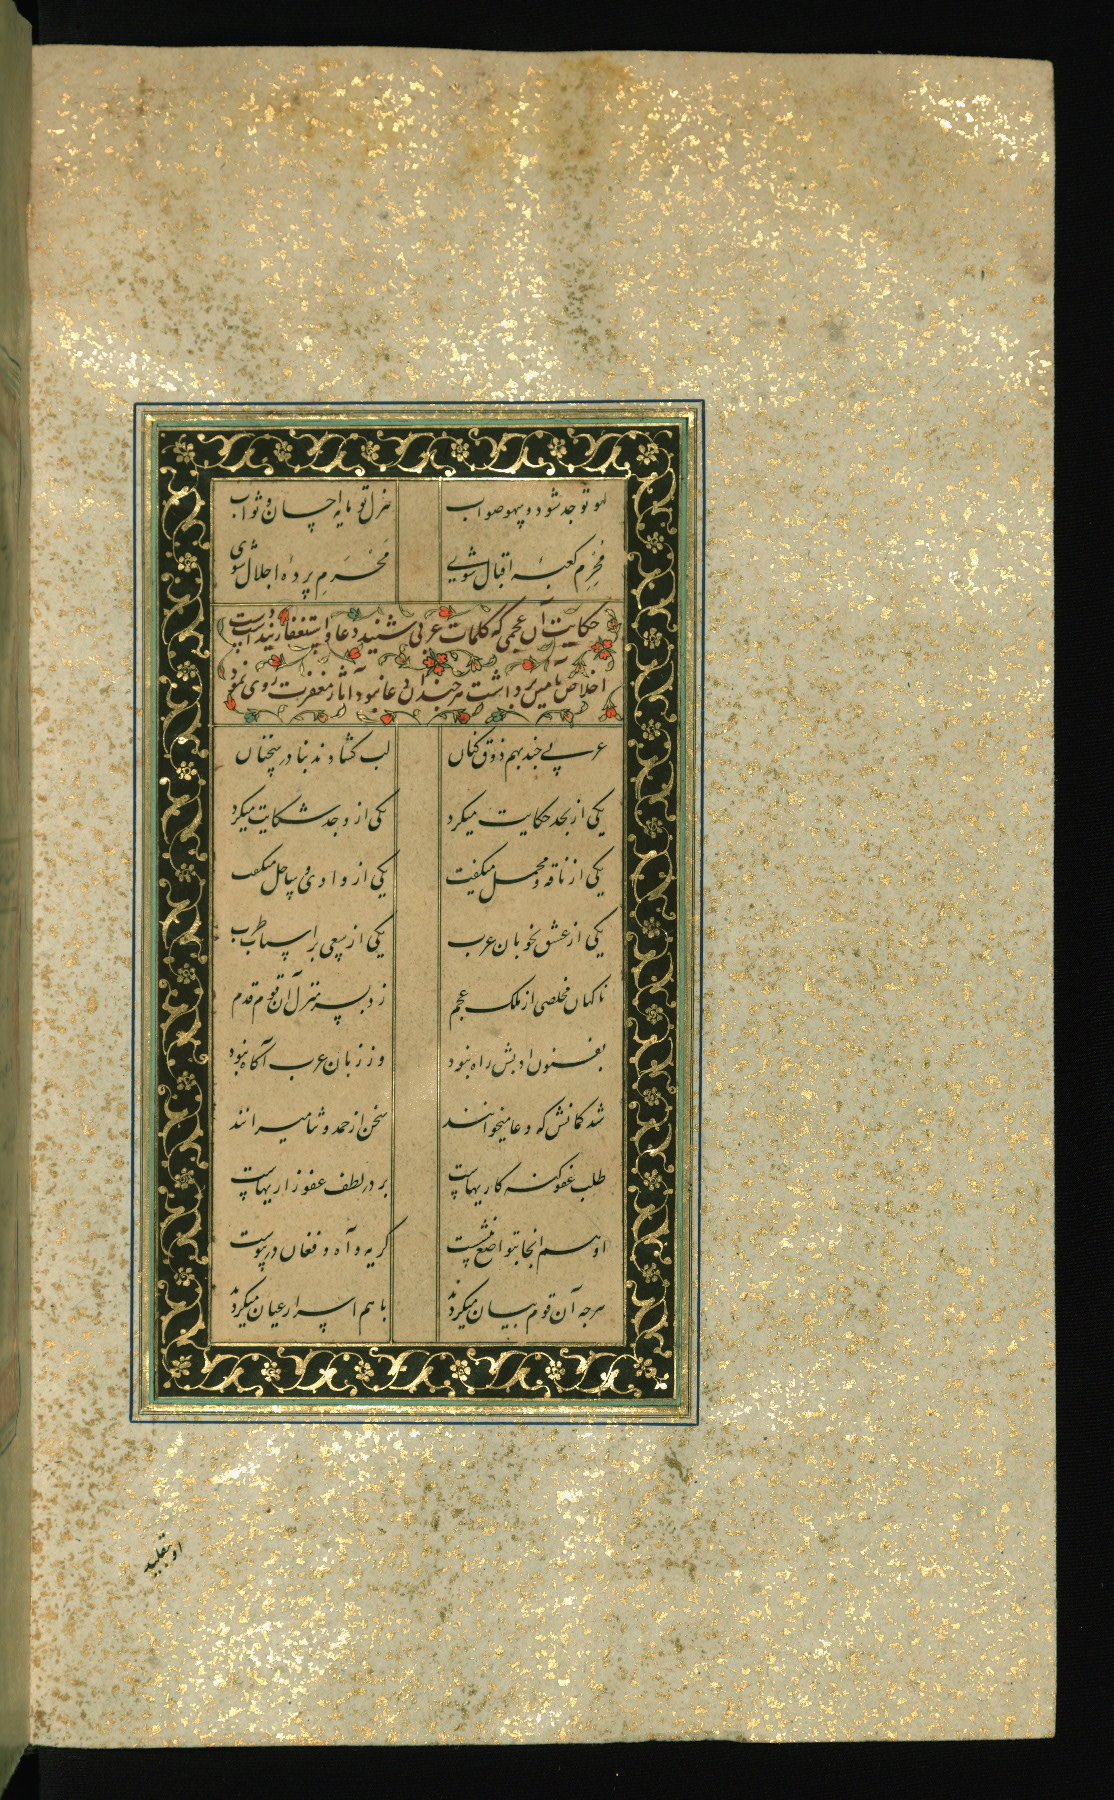 لهو تو جد شود و سهو صواب هزل تو مایه احسان و ثواب
محرم کعبه اقبال شوی محرم پرده اجلال شوی
حکایت آن عجمی که کلمات عربی شنید دعا و استغفار پنداشت دست
اخلاص بآمین برداشت هرچند آن دعا نبود آثار مغفرت روی نمود
عربی چند بهم ذوق کنان لب گشادند بنادر سخنان
یکی از نجد حکایت میکرد یکی از وجد شکایت میکرد
یکی از ناقه و محمل میگفت یکی از وادی و ساحل میگفت
یکی از عشق خوبان عرب یکی از سعی بر اسباب طرب
ناگهان مخلصی از ملک عجم زد بسر منزل آن قوم قدم
بفنون ادبش راه نبود وز زبان عرب آگاه نبود
شد گمانش که دعا میخوانند سخن از حمد و ثنا میرانند
طلب عفو گنه کاریهاست بر در لطف عفو زاریهاست
او هم آنجا بتواضع بنشست گریه و آه و فغان در پیوست
هرچه آن قوم بیان میکردند با هم اسرار عیان میکردند
او بتقلید